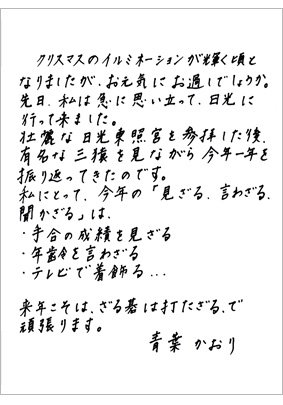 クリスマスのイルミネーションが輝く頃と
なりましたが、お元気にお過しでしょうか。
先日、私は急に思い立って、日光に
行って来ました。
壮麗な日光東照宮を参拝した後、
有名な三猿を見ながら今年一年を
振り返ってきたのです。
私にとって、今年の「見ざる、言わざる、
聞かざる」は、
・手合の成績を見ざる
・年齢を言わざる
・テレビで着飾る...
来年こそは、ざる碁は打たざる、で
頑張ります。
青葉かおり